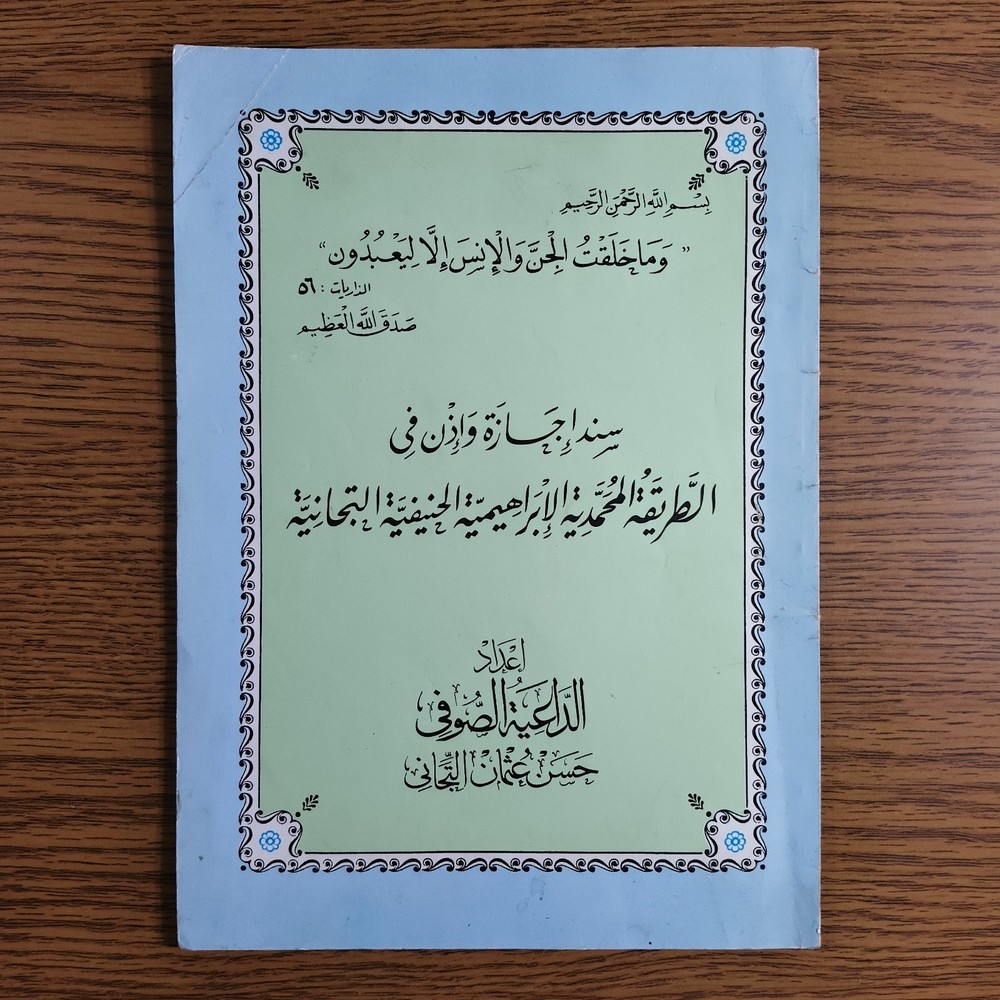 بِسْمِ اللَّهِ الرَّحْمَنِ الرَّحِيمِ
” وَمَا خَلَقْتُ الْجِنَّ وَالْإِنسَ إِلَّا لِيَعْبُدُون “
الذاريات : ٥٦
صَدَقَ اللَّهُ الْعَظِيم
سند إِجَازَة وَإِذْن فِي
الطَّرِيقَةُ المُحَمَّدِيَّة الإِبْرَاهِيمِيَّة الحَنِيفِيَّة التِجَانِيَّة
إعْدَادْ
الدَّاعِيَةُ الصُّوفِى
حَسَنْ عُثْمَانْ التِّجَانِى